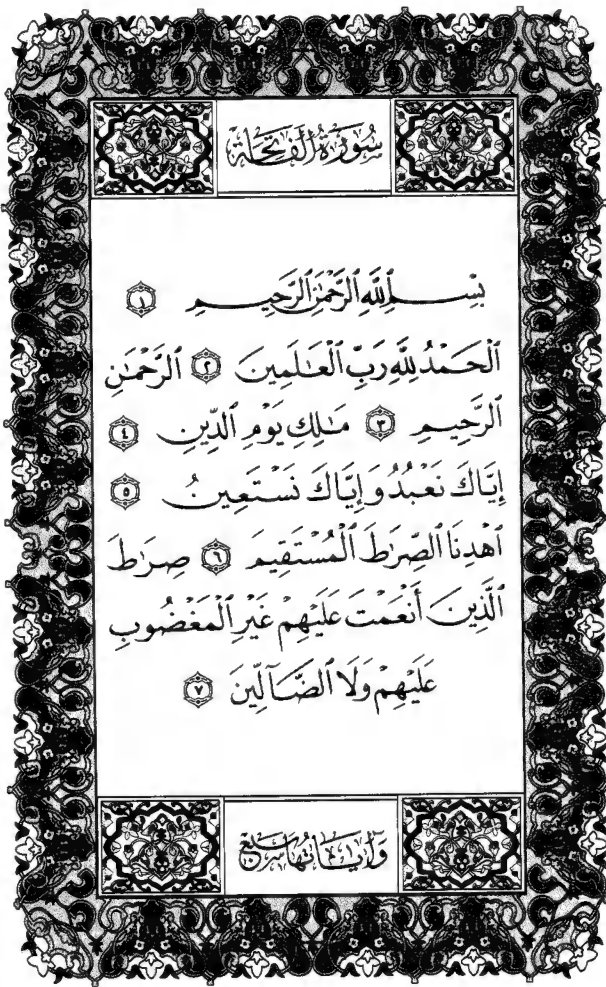 سُورَةُ ٱلْفَاتِحَة
بِسْمِ ٱللَّهِ ٱلرَّحْمَٰنِ ٱلرَّحِيمِ ۝١
ٱلْحَمْدُ لِلَّهِ رَبِّ ٱلْعَٰلَمِينَ ۝٢ ٱلرَّحْمَٰنِ
ٱلرَّحِيمِ ۝٣ مَٰلِكِ يَوْمِ ٱلدِّينِ ۝٤
إِيَّاكَ نَعْبُدُ وَإِيَّاكَ نَسْتَعِينُ ۝٥
ٱهْدِنَا ٱلصِّرَٰطَ ٱلْمُسْتَقِيمَ ۝٦ صِرَٰطَ
ٱلَّذِينَ أَنْعَمْتَ عَلَيْهِمْ غَيْرِ ٱلْمَغْضُوبِ
عَلَيْهِمْ وَلَا ٱلضَّآلِّينَ ۝٧
وَآيَاتُهَا سَبْعٌ